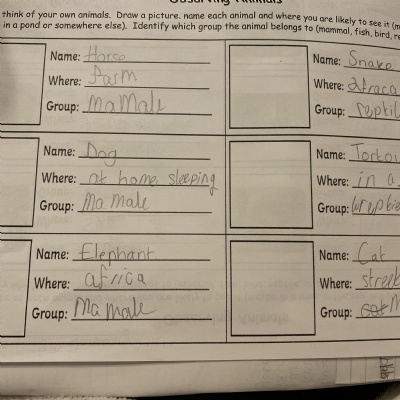 Observing Animals
think of your own animals. Draw a picture, name each animal and where you are likely to see it (
in a pond or somewhere else). Identify which group the animal belongs to (mammal, fish, bird, re
Name: Horse
Where: Farm
Group: MaMale
Name: Snake
Where: afraca
Group: reptil
Name: Dog
Where: at home sleeping
Group: Ma male
Name: Tortoi
Where: in a
Group:
Name: Elephant
Where: africa
Group: Ma male
Name: Cat
Where: street
Group: M